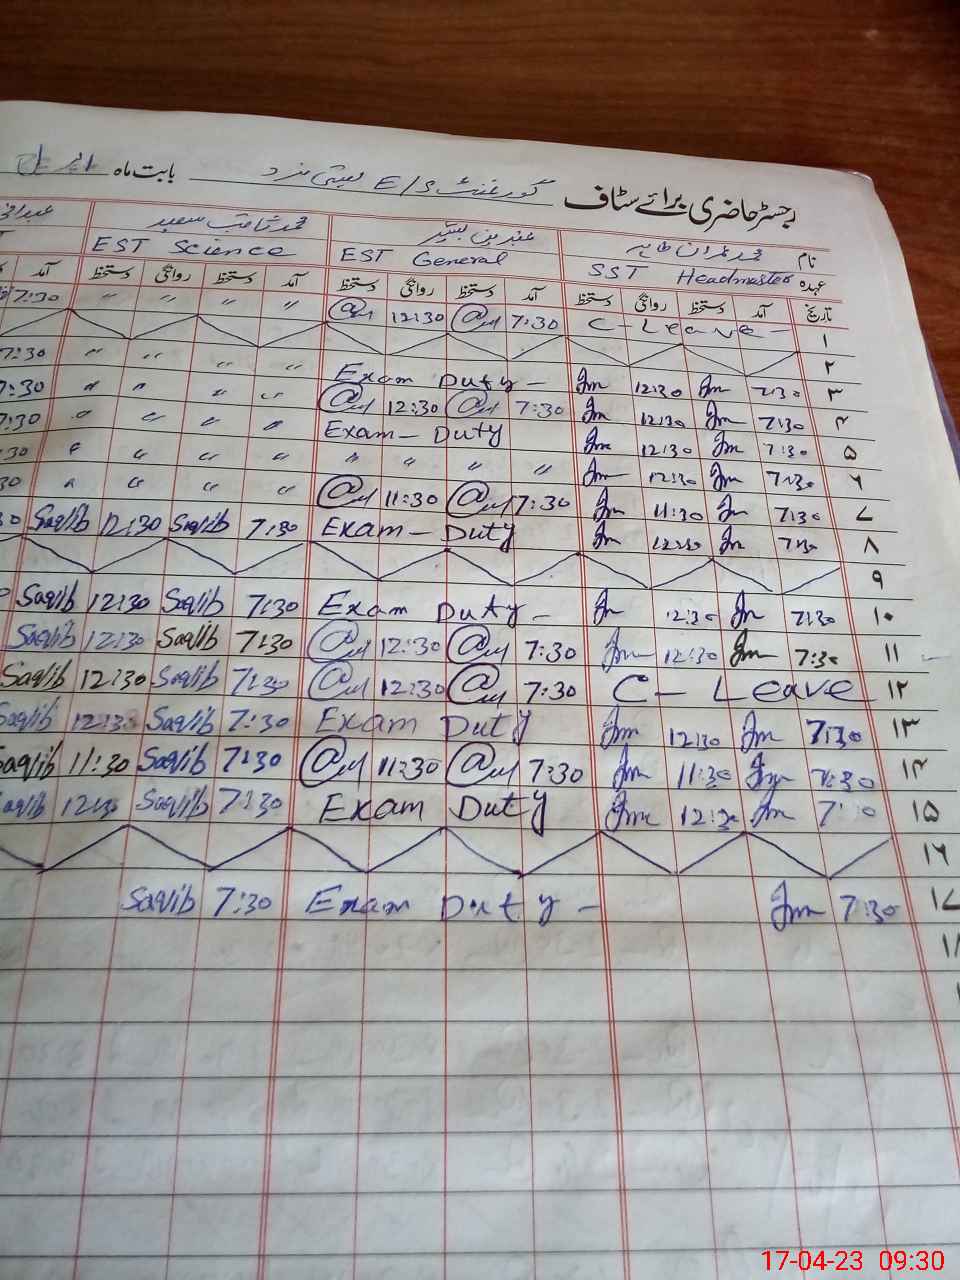 رجسٹر حاضری برائے سٹاف گورنمنٹ E/S بستی بابت ماہ اپریل
نام محمد عمران طاہر عندرین بشیر محمد ثاقب سعید
عہدہ SST Headmaster EST General EST Science
تاریخ آمد دستخط روانگی دستخط آمد دستخط روانگی دستخط آمد دستخط روانگی دستخط آمد
۱ C-Leave- 7:30 12:30 " " " " 7:30
۲
۳ 7:30 Jm 12:30 Jm Exam Duty - " " " " 7:30
۴ 7:30 Jm 12:30 Jm 7:30 12:30 " " " " 7:30
۵ 7:30 Jm 12:30 Jm Exam - Duty " " " " 7:30
۶ 7:30 Jm 12:30 Jm " " " " " " " " :30
۷ 7:30 Jm 11:30 Jm 7:30 11:30 " " " " 30
۸ 7:30 Jm 12:30 Jm Exam - Duty 7:30 Saqib 12:30 Saqib
۹
۱۰ 7:30 Jm 12:30 Jm Exam Duty - 7:30 Saqib 12:30 Saqib
۱۱ 7:30 Jm 12:30 Jm 7:30 12:30 7:30 Saqib 12:30 Saqib
۱۲ C - Leave 7:30 12:30 7:30 Saqib 12:30 Saqib
۱۳ 7:30 Jm 12:30 Jm Exam Duty 7:30 Saqib 12:30 Saqib
۱۴ 7:30 Jm 11:30 Jm 7:30 11:30 7:30 Saqib 11:30 Saqib
۱۵ 7:30 Jm 12:30 Jm Exam Duty 7:30 Saqib 12:30 Saqib
۱۶
۱۷ 7:30 Jm Exam Duty - 7:30 Saqib
۱۸
17-04-23 09:30